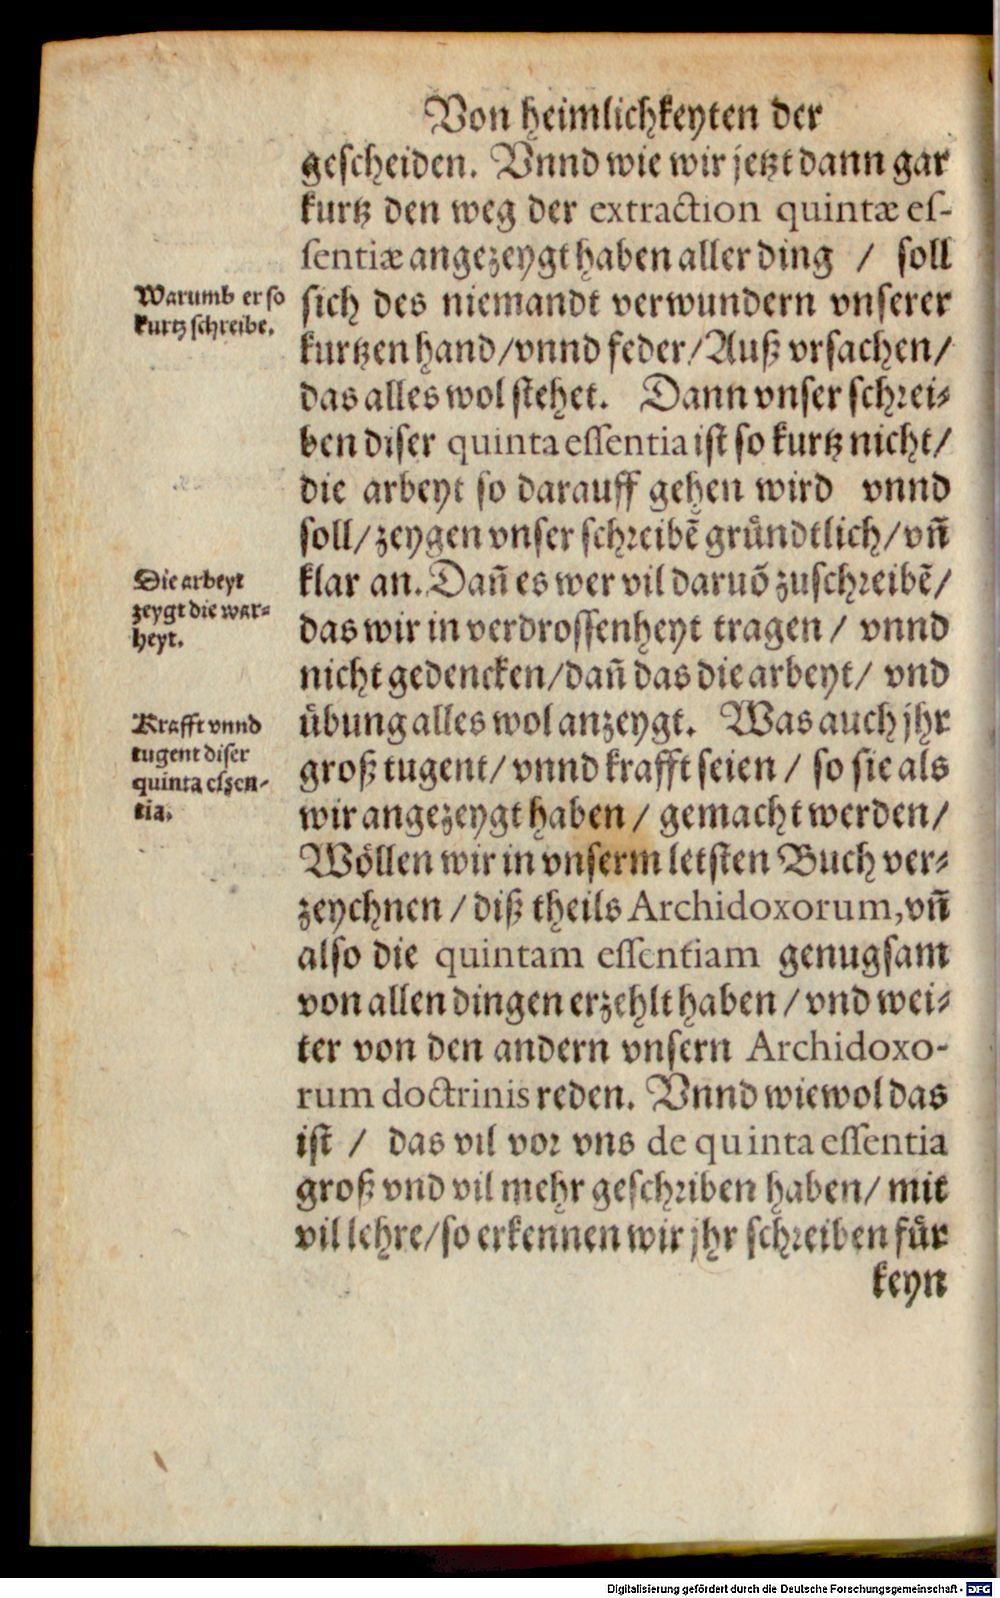 Von heimlichkeyten der
gescheiden. Vnnd wie wir jetzt dann gar
kurtz den weg der extraction quintæ eſ-
ſentiæ angezeygt haben aller ding / soll
sich des niemandt verwundern vnserer
kurtzen hand/vnnd feder/Auß vrsachen/
das alles wol stehet. Dann vnser schrei-
ben diser quinta eſſentia ist so kurtz nicht/
die arbeyt so darauff gehen wird vnnd
soll/zeygen vnser schreibẽ gruͤndtlich/vñ
klar an. Dañ es wer vil daruõ zuschreibẽ/
das wir in verdrossenheyt tragen / vnnd
nicht gedencken/dañ das die arbeyt/ vnd
uͤbung alles wol anzeygt. Was auch jhr
groß tugent/vnnd krafft seien / so sie als
wir angezeygt haben / gemacht werden/
Woͤllen wir in vnserm letsten Buch ver-
zeychnen / diß theils Archidoxorum,vñ
also die quintam eſſentiam genugsam
von allen dingen erzehlt haben / vnd wei-
ter von den andern vnsern Archidoxo-
rum doctrinis reden. Vnnd wiewol das
ist / das vil vor vns de quinta eſſentia
groß vnd vil mehr geschriben haben/ mit
vil lehre/so erkennen wir jhr schreiben fuͤr
keyn
Warumb er so
kurtz schreibe.
Die arbeyt
zeygt die war-
heyt.
Krafft vnnd
tugent diser
quinta essen-
tia.
Digitalisierung gefördert durch die Deutsche Forschungsgemeinschaft - DFG